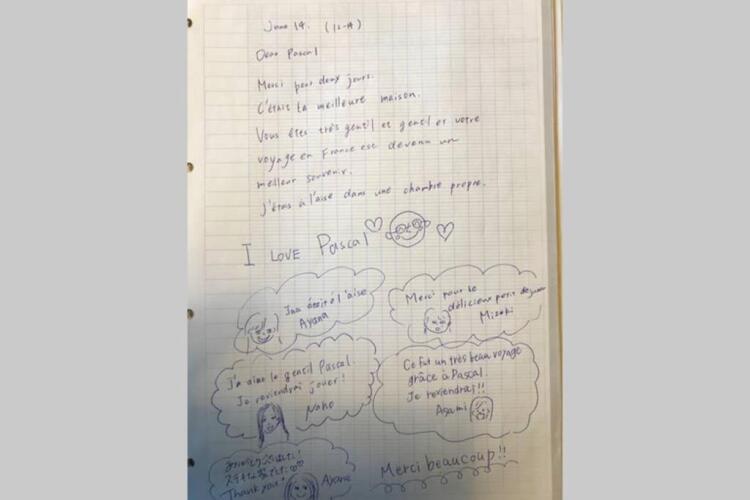 June 14. (12-A)
Dear Pascal
Merci pour deux jours.
C'était la meilleure maison.
Vous êtes très gentil et gentil et votre
voyage en France est devenu un
meilleur souvenir.
J'étais à l'aise dans une chambre propre.
I LOVE Pascal
était à l'aise
Ayana
Merci pour le
délicieux petit
Mizuki
J'a aime le gentil Pascal.
Je reviendrai jouer!
Naho
Ce fut un très beau voyage
grâce à Pascal.
Je reviendrai!!
Asami
ありがとうございました!
ステキな家でした
Thank you!
Ayane
Merci beaucoup!!